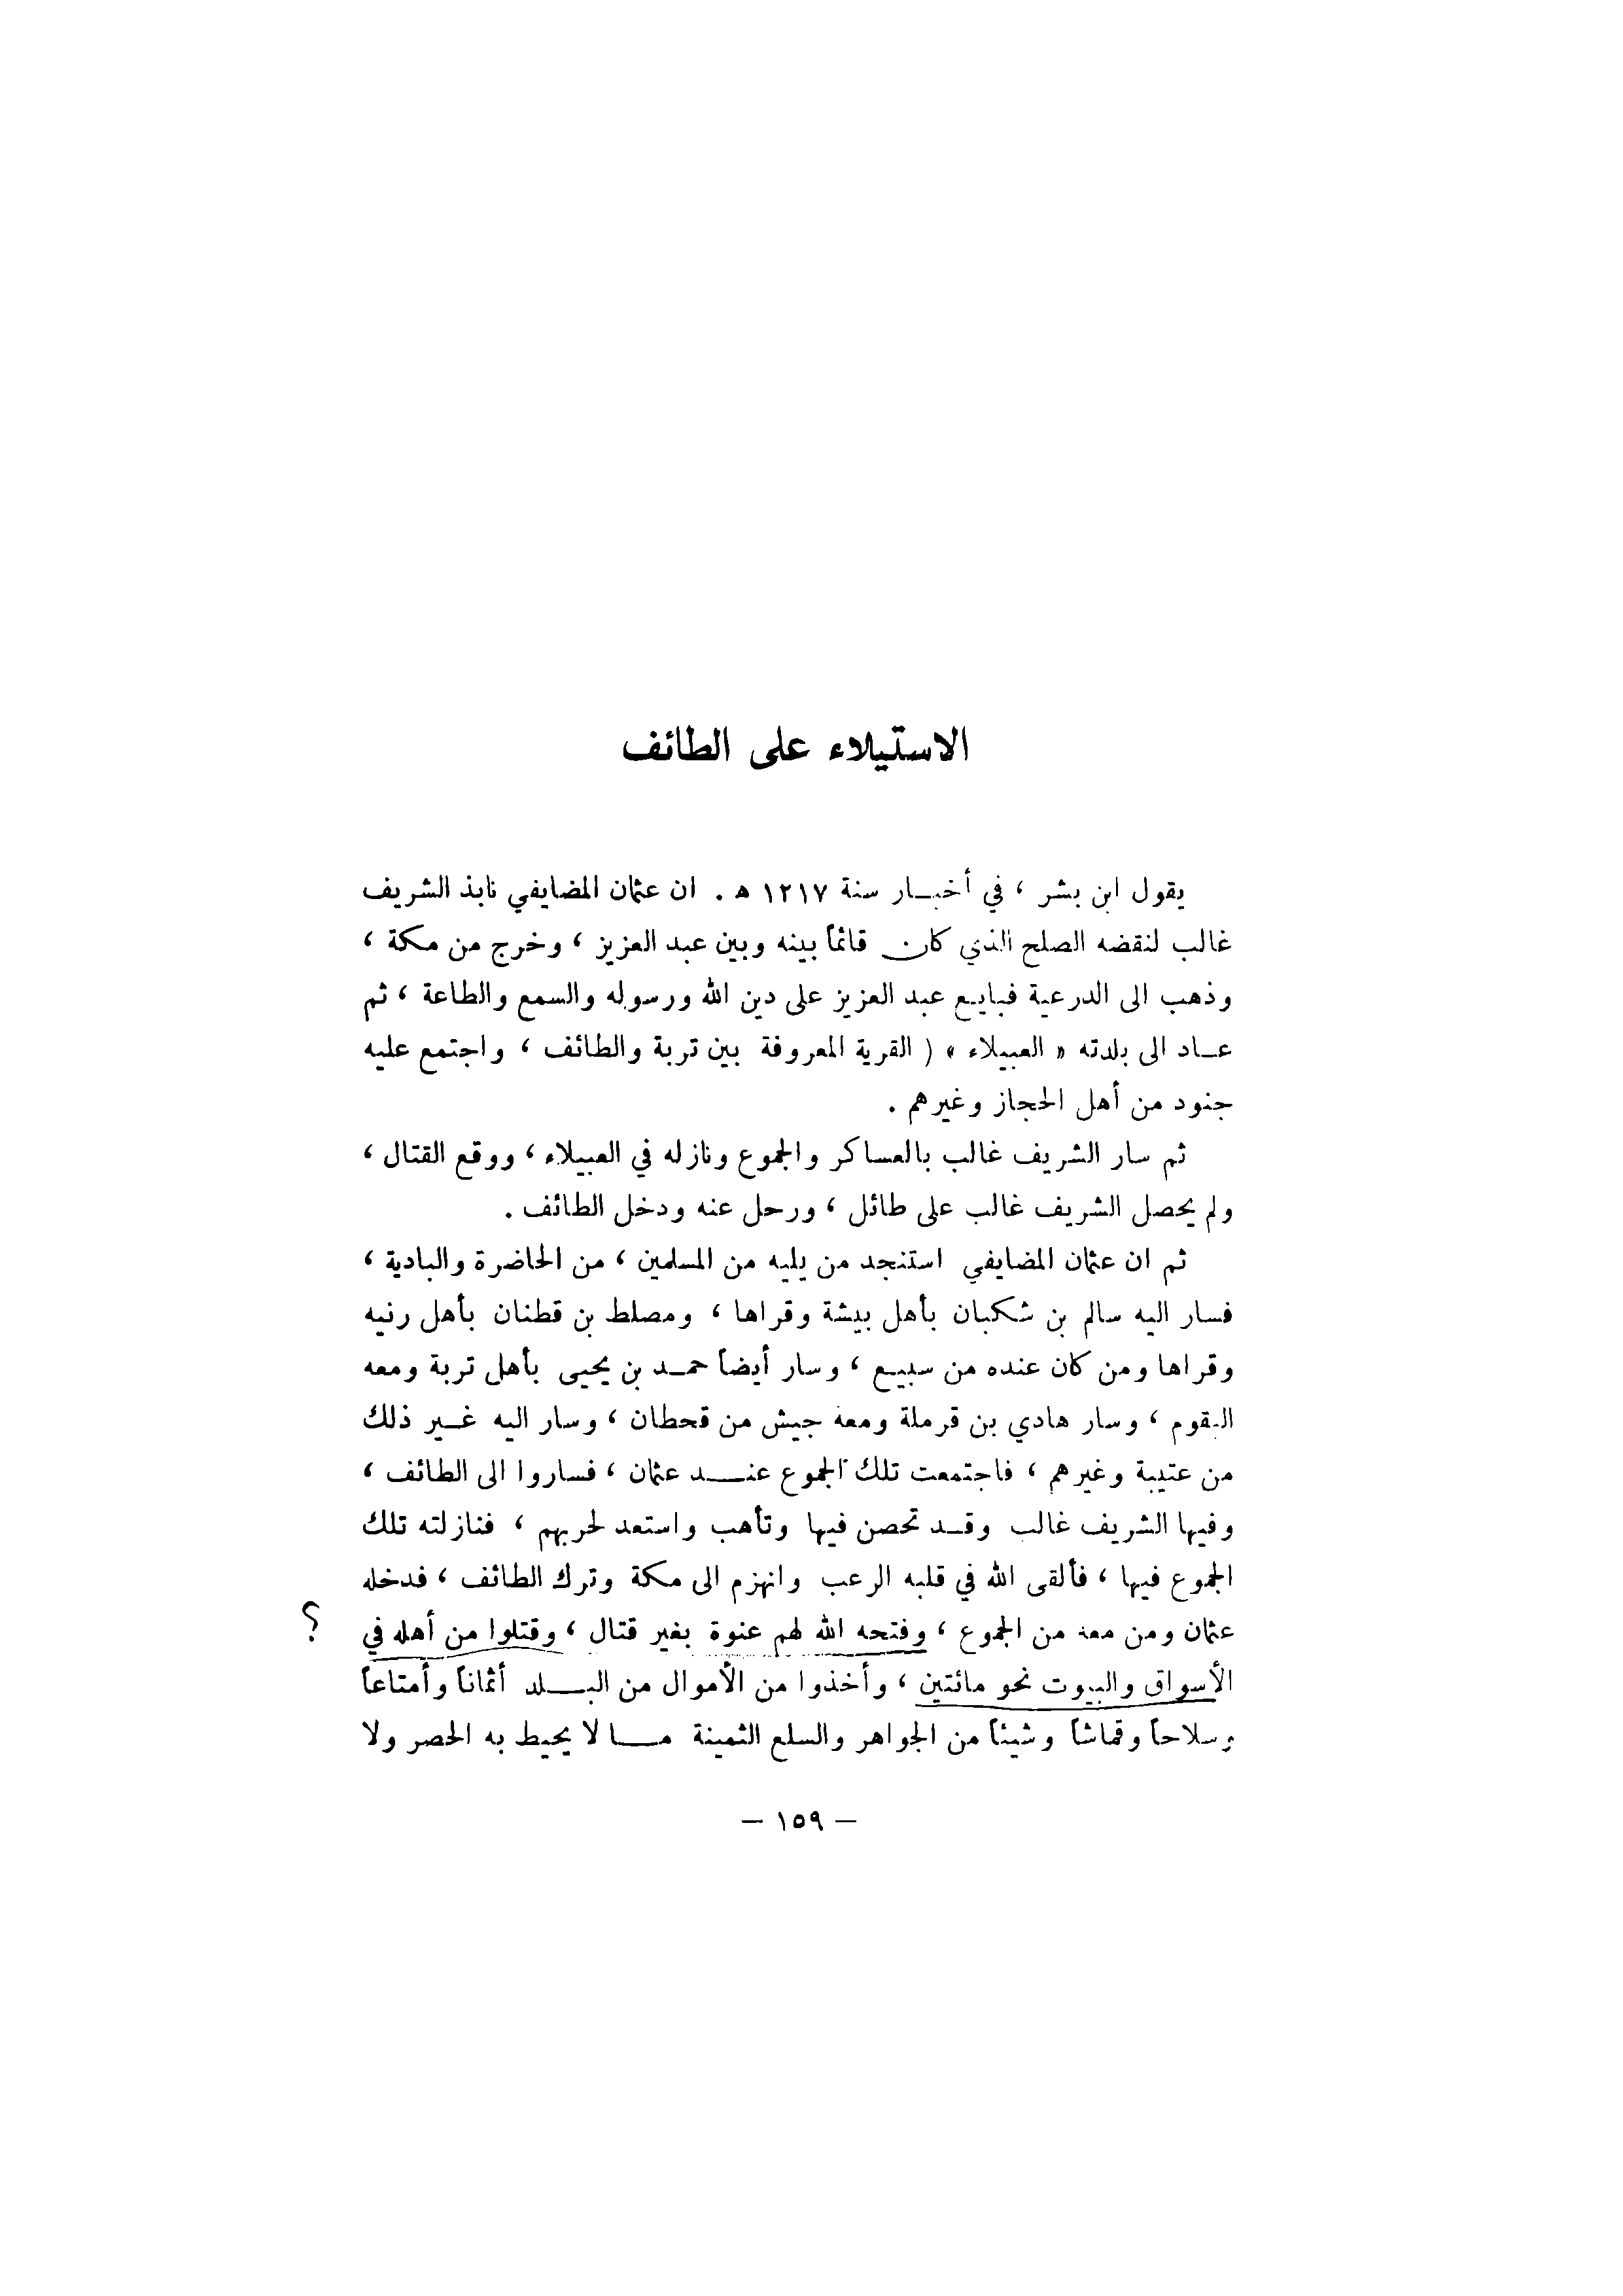 الاستيلاء على الطائف
يقول ابن بشر ، في أخبـار سنة ١٢١٧ هـ . ان عثمان المضايفي نابذ الشريف
غالب لنقضه الصلح الذي كان قائماً بينه وبين عبد العزيز ، وخرج من مكة ،
وذهب الى الدرعية فبايع عبد العزيز على دين الله ورسوله والسمع والطاعة ، ثم
عـاد الى بلدته « العبيلاء » ( القرية المعروفة بين تربة والطائف ، واجتمع عليه
جنود من أهل الحجاز وغيرهم .
ثم سار الشريف غالب بالعساكر والجموع ونازله في العبيلاء ، ووقع القتال ،
ولم يحصل الشريف غالب على طائل ، ورحل عنه ودخل الطائف .
ثم ان عثمان المضايفي استنجد من يليه من المسلمين ، من الحاضرة والبادية ،
فسار اليه سالم بن شكبان بأهل بيشة وقراها ، ومصلط بن قطنان بأهل رنيه
وقراها ومن كان عنده من سبيع ، وسار أيضاً حمـد بن يحيى بأهل تربة ومعه
البقوم ، وسار هادي بن قرملة ومعه جيش من قحطان ، وسار اليه غـير ذلك
من عتيبة وغيرهم ، فاجتمعت تلك الجموع عنـــد عثمان ، فساروا الى الطائف ،
وفيها الشريف غالب وقـد تحصن فيها وتأهب واستعد لحربهم ، فنازلته تلك
الجموع فيها ، فألقى الله في قلبه الرعب وانهزم الى مكة وترك الطائف ، فدخله
عثمان ومن معه من الجموع ، وفتحه الله لهم عنوة بغير قتال ، وقتلوا من أهله في ؟
الأسواق والبيوت نحو مائتين ، وأخذوا من الأموال من البـــلد أثماناً وأمتاعاً
وسلاحاً وقماشاً وشيئاً من الجواهر والسلع الثمينة مـــا لا يحيط به الحصر ولا
— ١٥٩ —